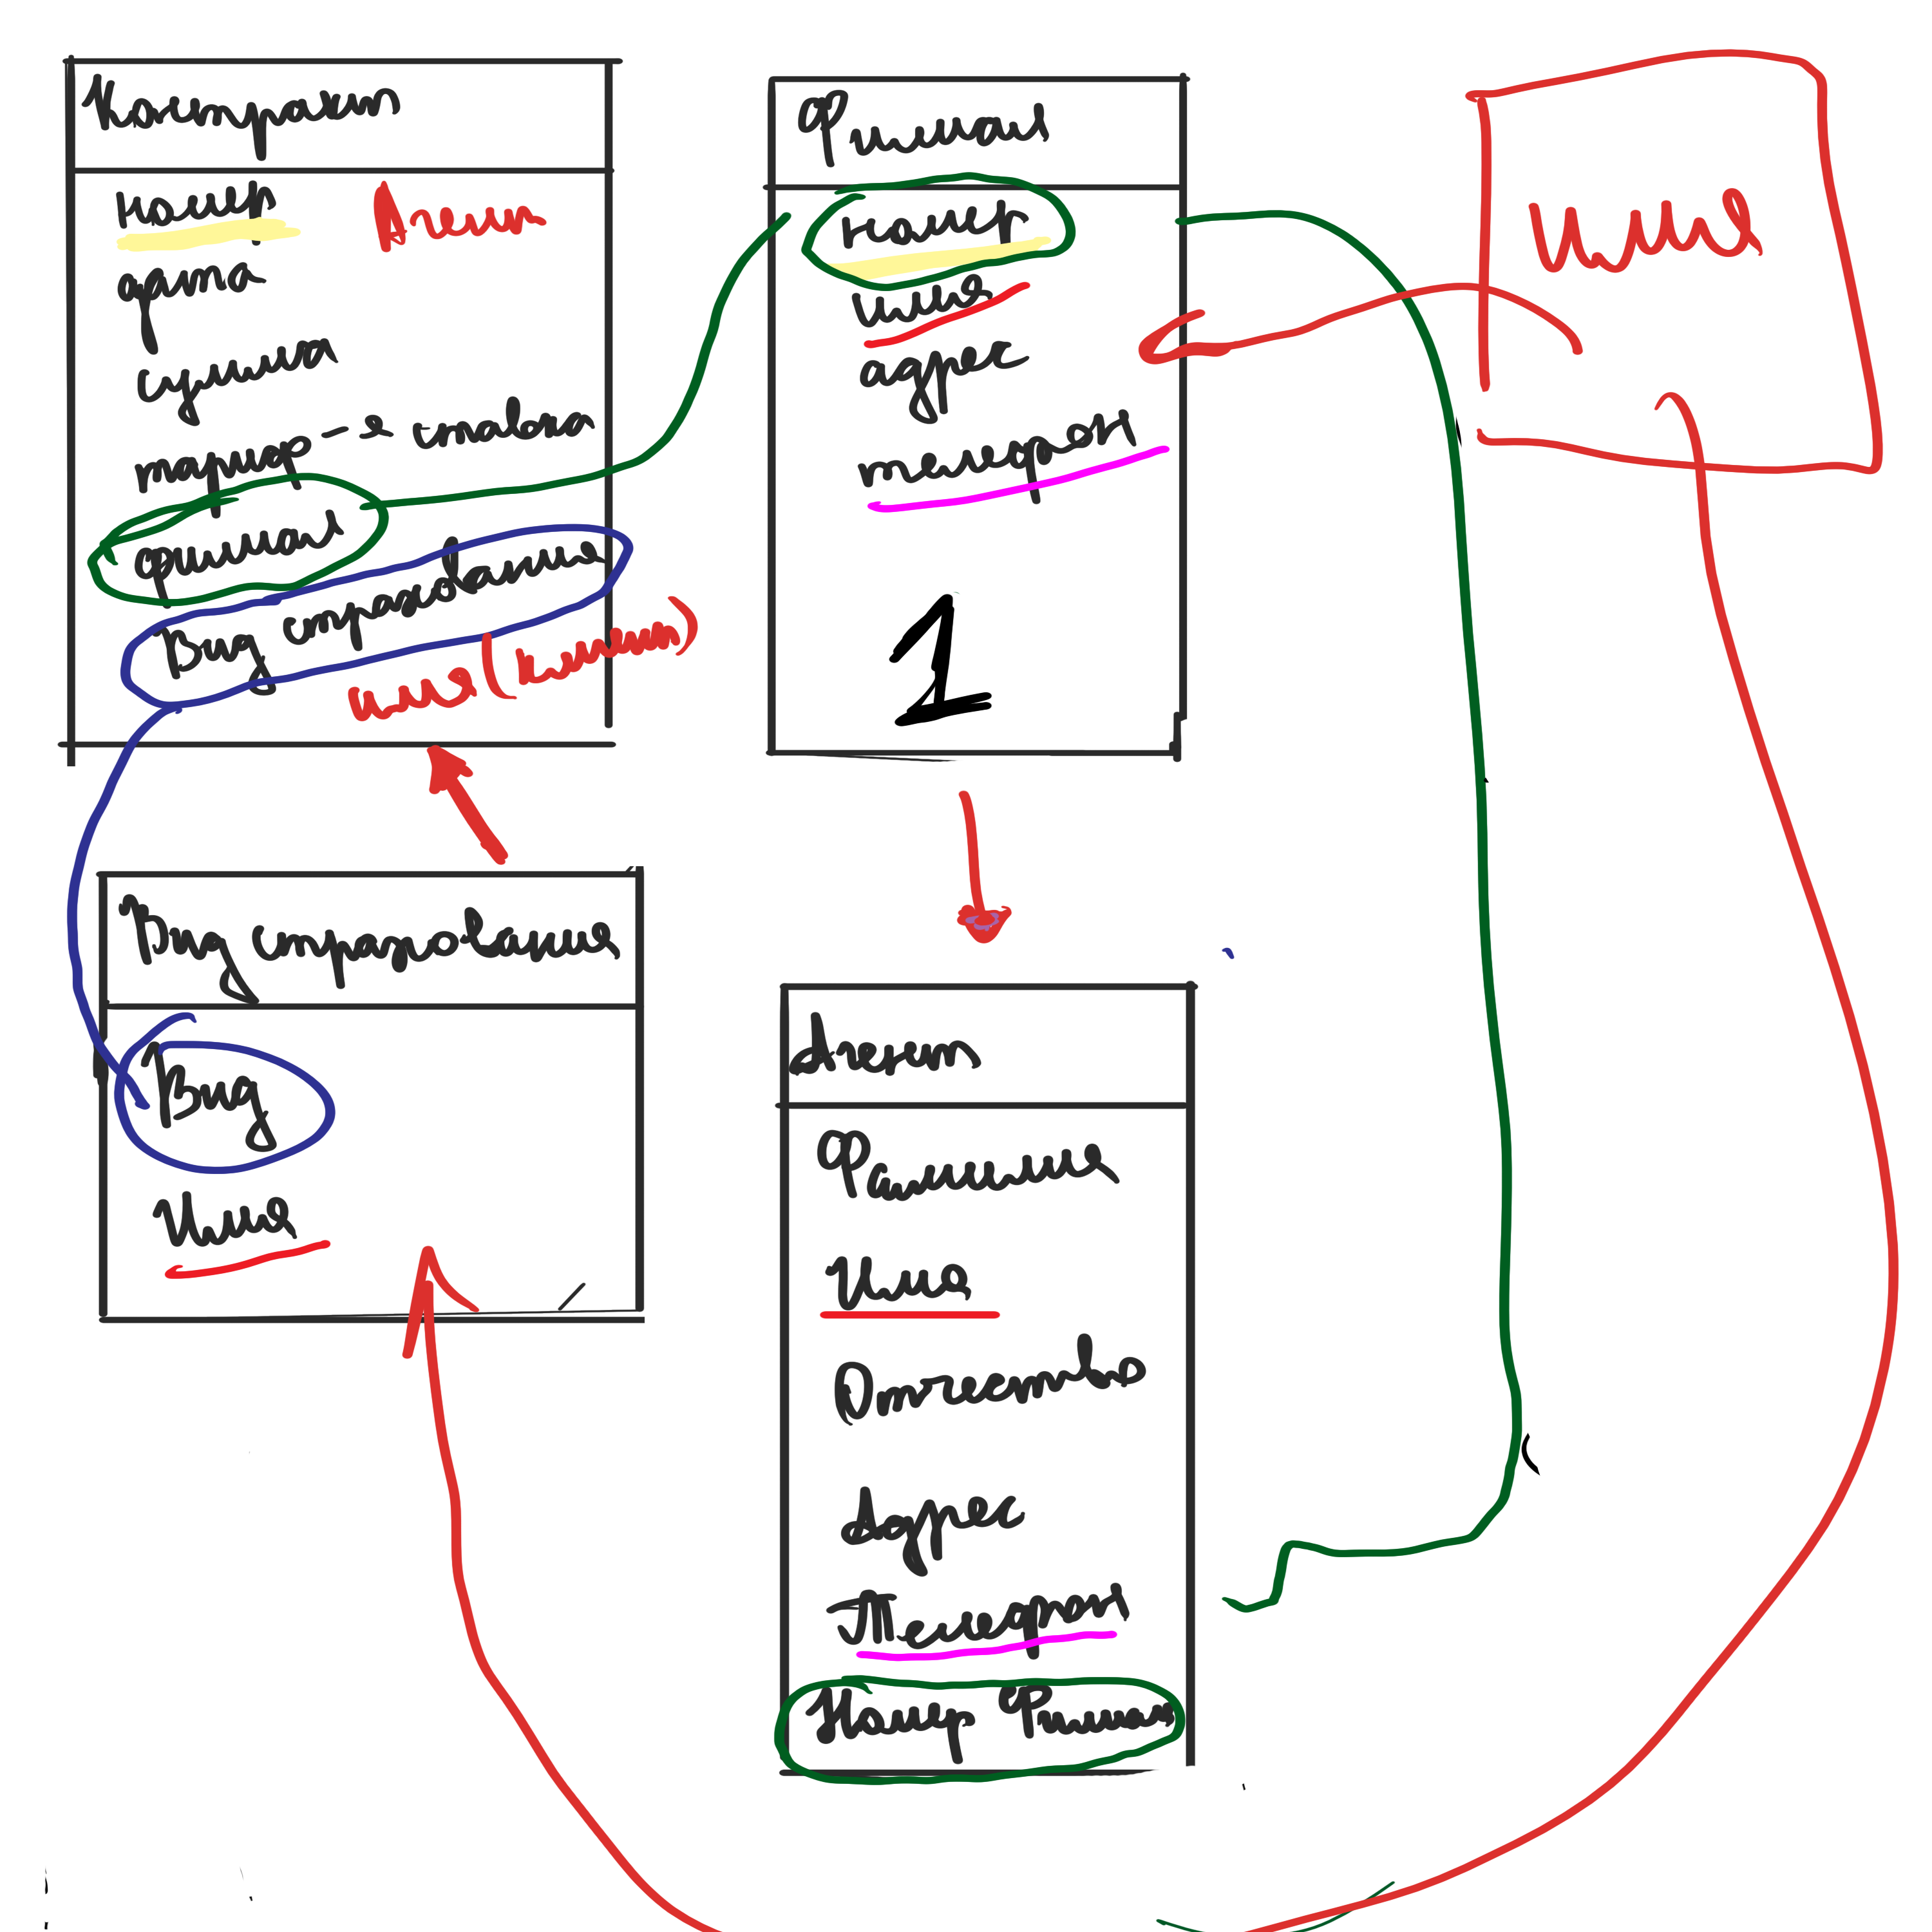 Контракт
номер
Агент
дата
сумма
тариф-е ставка
филиал
Вид страхования
имя (клиент)
Филиал
номер
имя
адрес
телефон
1
имя
Вид страхования
Вид
Имя
Агент
Фамилия
Имя
Отчество
Адрес
Телефон
Номер Филиал